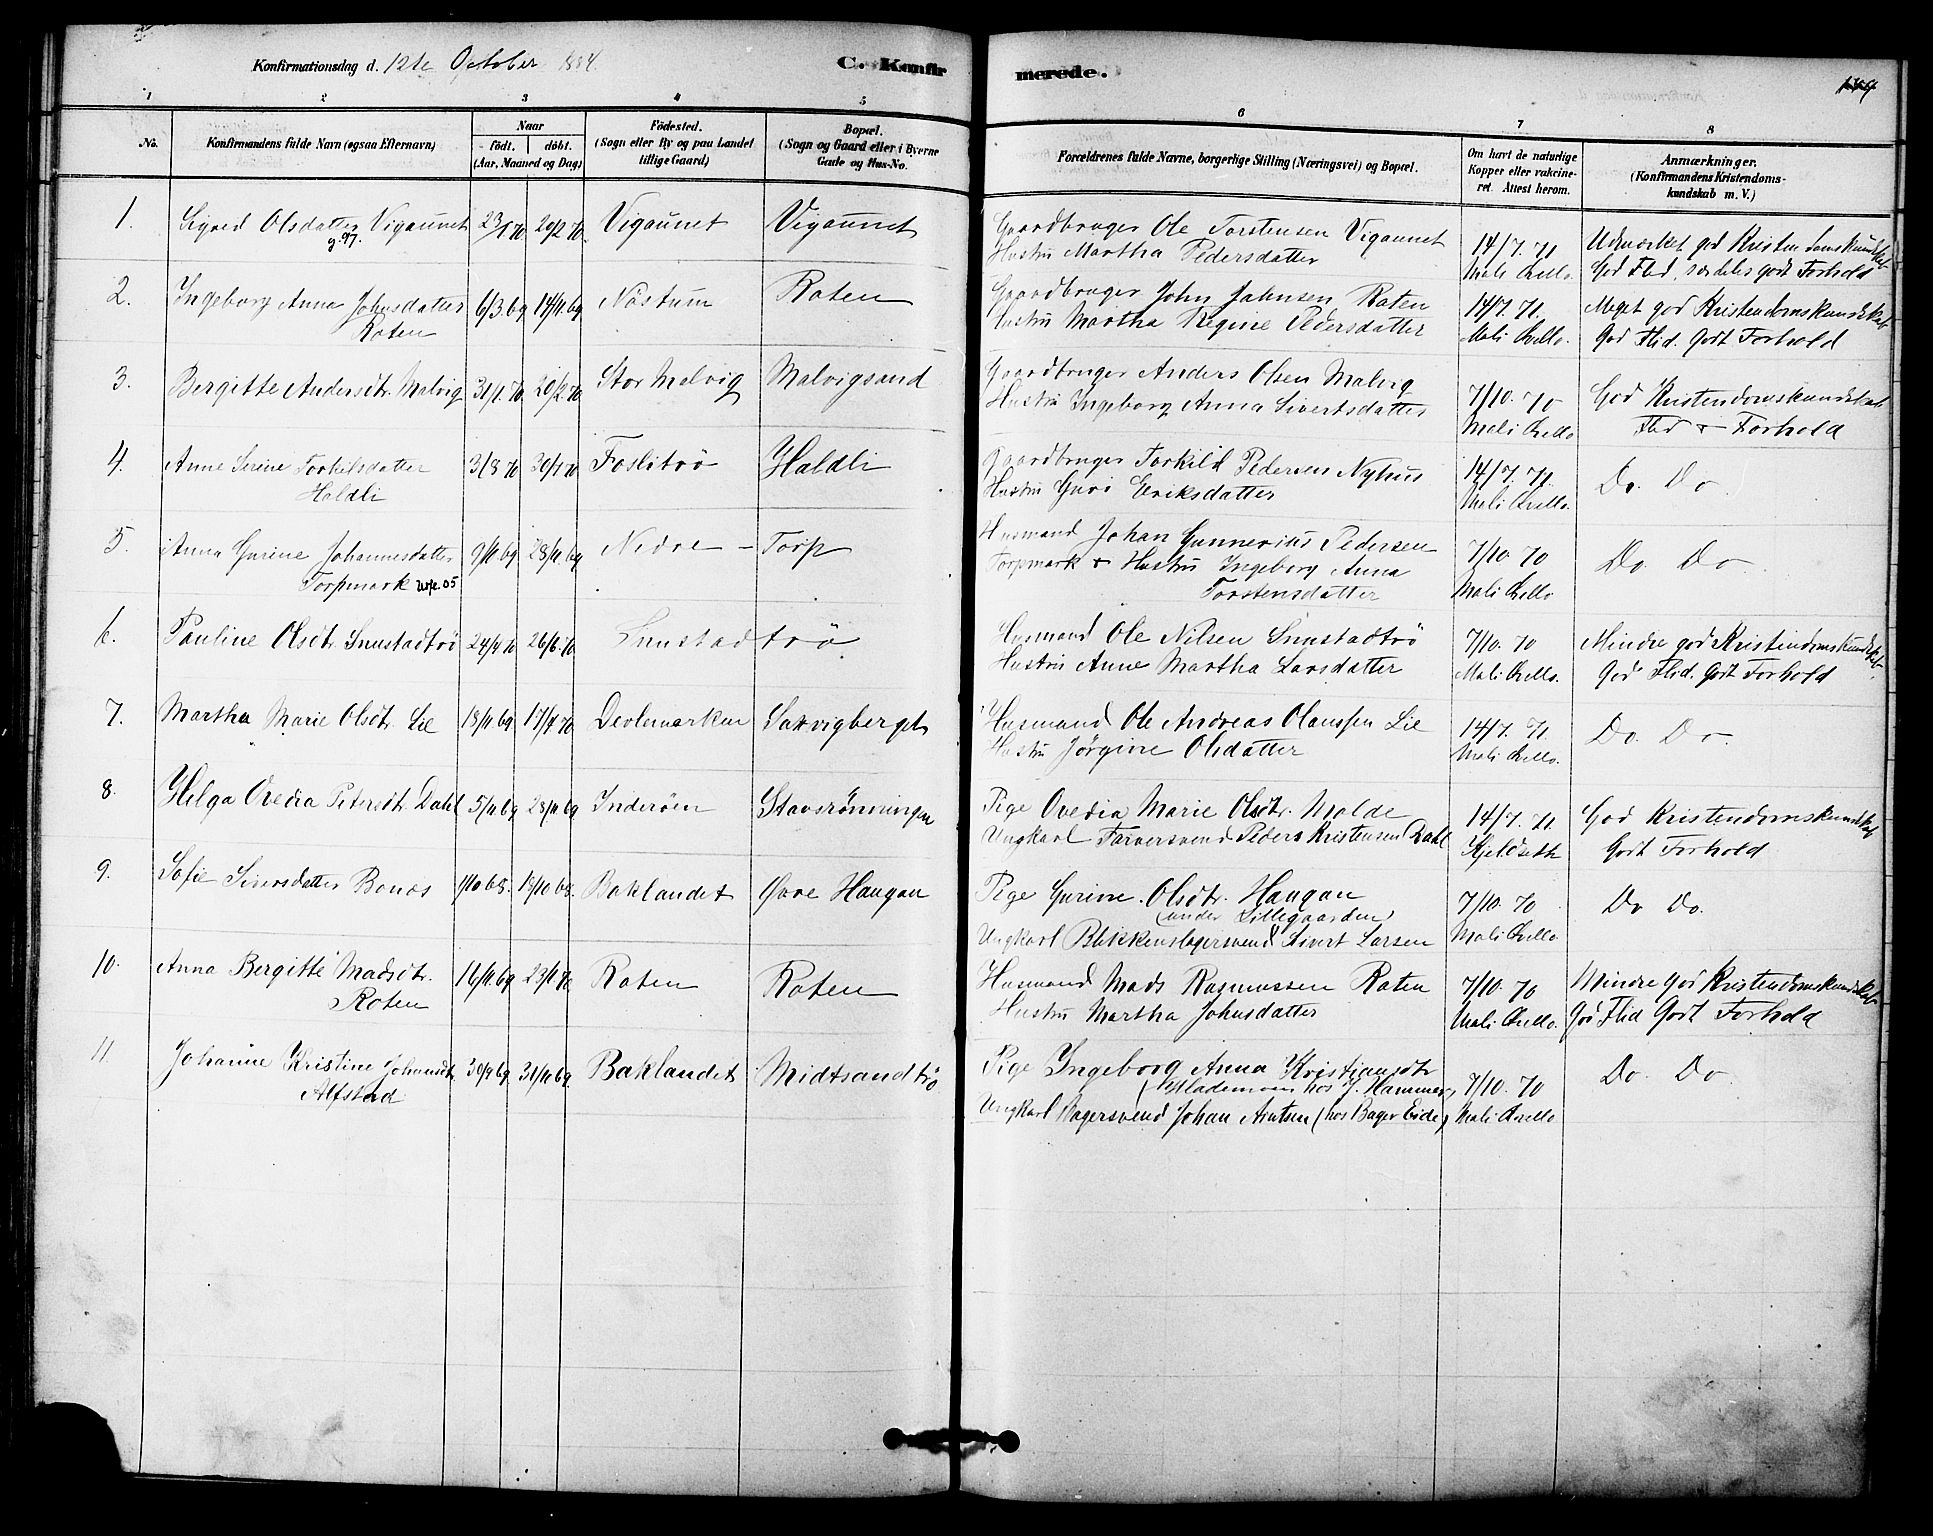 Konfirmationsdag d. 12te October 1884.
C. Konfirmerede.
1 2 3 4 5 6 7 8
No.
Konfirmandens fulde Navn (ogsaa Efternavn)
Naar
födt. döbt.
(Aar, Maaned og Dag)
Födested.
(Sogn eller By og paa Landet
tillige Gaard)
Bopæl.
(Sogn og Gaard eller i Byerne
Gade og Hus-No.
Forældrenes fulde Navne, borgerlige Stilling (Næringsvei) og Bopæl.
Om havt de naturlige
Kopper eller vakcine-
ret. Attest herom.
Anmærkninger.
(Konfirmandens Kristendoms-
kundskab m. V.)
1. Sigrid Olsdatter Vigaunet 23/1 70 20/2 70. Vigaunet Vigaunet Gaardbruger Ole Torstensen Vigaunet 14/7. 71 Udmærket god Kristendomskundskab
g. 97. Hustru Martha Pedersdatter Mali Qvello. God Flid, særdeles godt Forhold
2. Ingeborg Anna Johnsdatter 6/3 69 14/11 69 Nästum Roten Gaardbruger John Johnsen Roten 14/7. 71. Meget god Kristendomskundskab
Roten Hustru Martha Regine Pedersdatter Mali Qvello. God Flid. Godt Forhold
3. Bergitte Andersdtr. Malvig 31/1. 70 20/2 70 Stor Malvig Malvigsand Gaardbruger Anders Olsen Malvig 7/10. 70 God Kristendomskundskab
Hustru Ingeborg Anna Sivertsdatter Mali Qvello Flid & Forhold
4. Anne Serine Torkilsdatter 3/8 70 30/ 70 Foslitrö Haldli Gaardbruger Torkild Pedersen Nyhus 14/7. 71. Do. Do.
Haldli Hustru Guri Eriksdatter Mali Qvello.
5. Anna Gurine Johannesdatter 9/11 69 28/11 69 Nedre - Torp Husmand Johan Gunnerius Pedersen 7/10 70 Do Do
Torpmark 05 Torpmark & Hustru Ingeborg Anna Mali Qvello
Torstensdatter
6. Pauline Olsdtr. Snustadtrö 24/4 70 26/6 70 Snustadtrö Husmand Ole Nilsen Snustadtrö 7/10. 70 Mindre god Kristendomskundskab
Hustru Anne Martha Larsdatter Mali Qvello. God Flid. Godt Forhold
7. Martha Marie Olsdtr. Lie 18/11 69 17/4 70 Devlemarken Saxvigberget Husmand Ole Andreas Olaussen Lie 14/7. 71 Do. Do.
Hustru Jörgine Olsdatter Mali Qvello.
8. Helga Ovedia Petersdtr. Dahl 5/11 69 28/11 69 Inderöen Stavsrönningen Pige Ovedia Marie Olsdtr. Molde 14/7. 71. God Kristendomskundskab
Ungkarl Farversvend Peders Kristensen Dahl Kjeldseth Godt Forhold
9. Sofie Siversdatter Bonæs 1/10 68. 18/10 68. Baklandet Övre Haugan Pige Gurine Olsdtr. Haugan 7/10. 70 Do Do.
(under Lillegaarden)
Ungkarl Blikkenslagersvend Sivert Larsen Mali Qvello
10. Anna Bergitte Madsdtr. 16/11 69 23/1 70 Roten Roten Husmand Mads Rasmussen Roten 7/10. 70 Mindre god Kristendomskundskab
Roten Hustru Martha Johnsdatter Mali Qvello. God Flid Godt Forhold
11. Johanne Kristine Johansdtr 30/9 69 31/11 69 Baklandet Midtsandtrö Pige Ingeborg Anna Kristiansdtr 7/10. 70 Do. Do
Alfstad (Hlademoen hos J. Hammer)
Ungkarl Bagersvend Johan Arntsen (hos Bager Eide) Mali Qvello